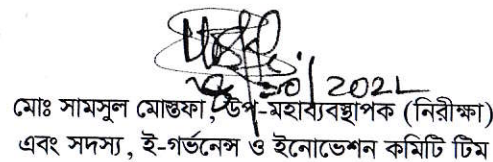 ২০/ 2021
মোঃ সামসুল মোস্তফা, উপ-মহাব্যবস্থাপক (নিরীক্ষা)
এবং সদস্য, ই-গর্ভনেন্স ও ইনোভেশন কমিটি টিম